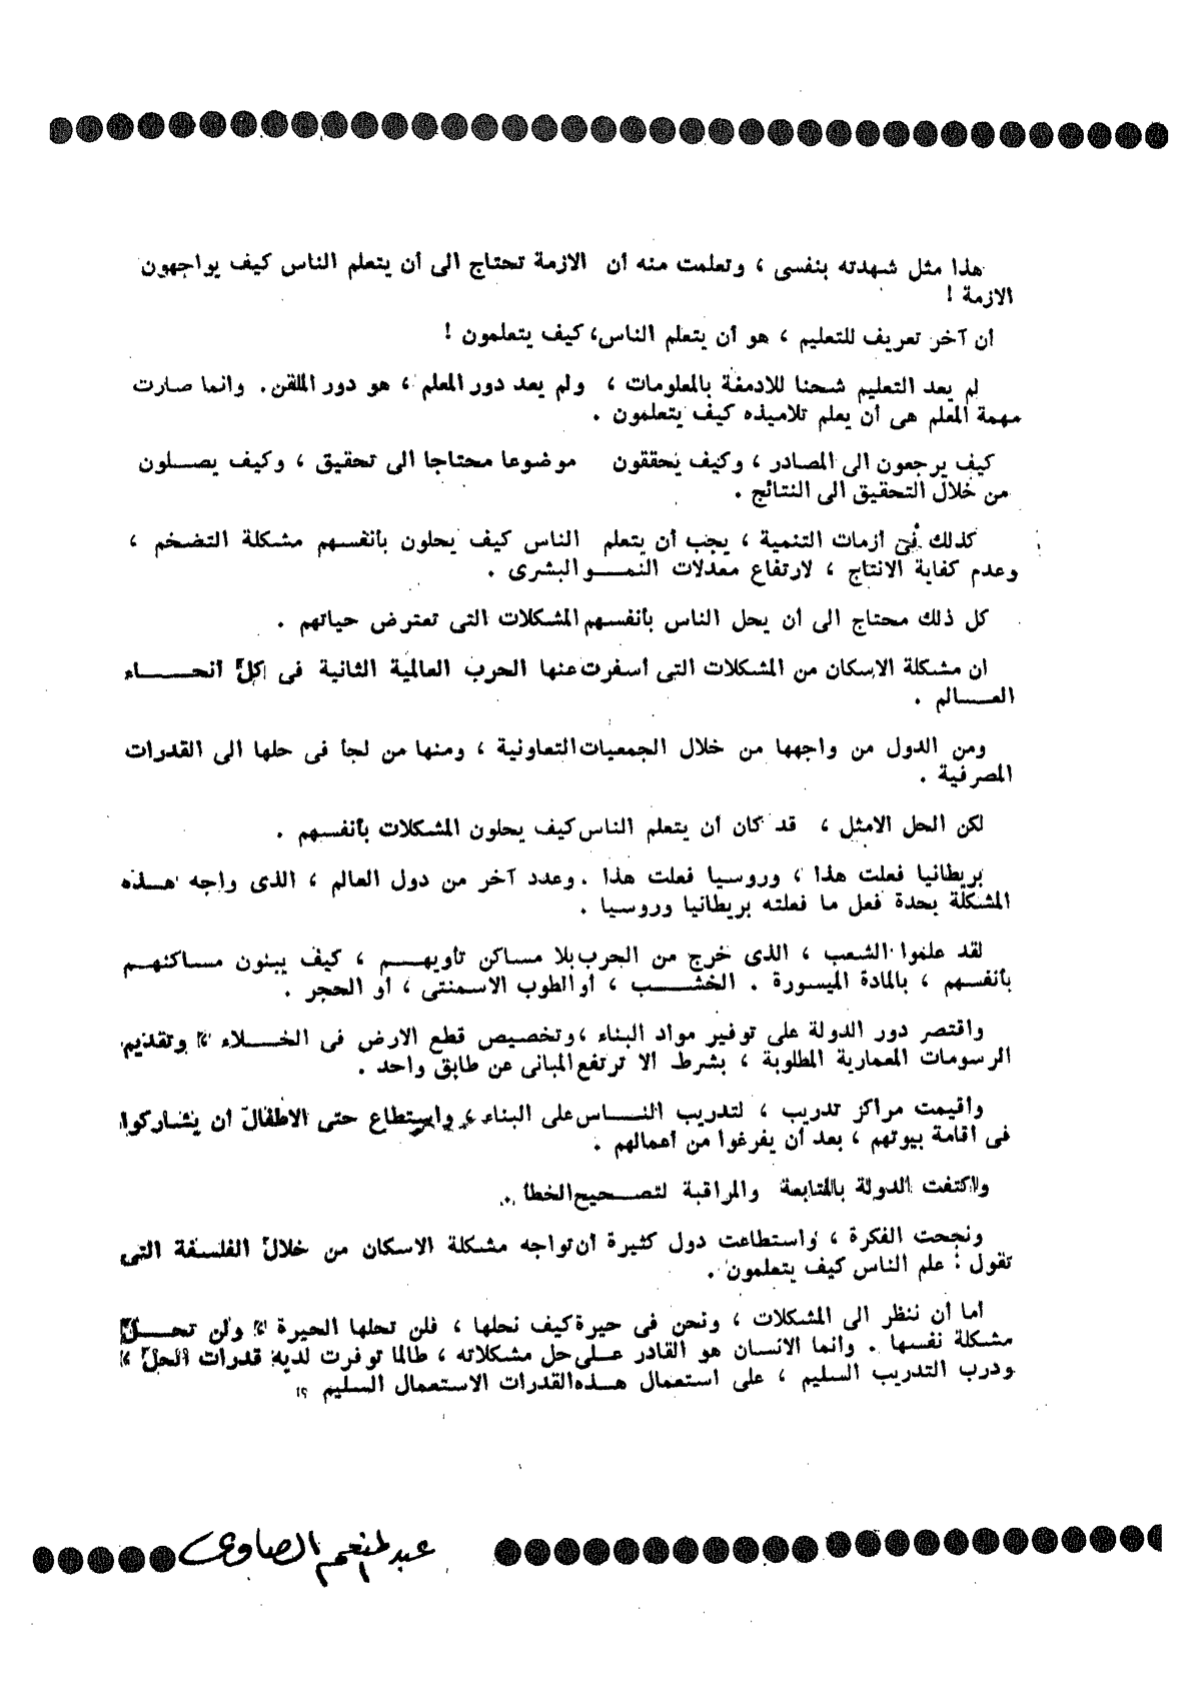 هذا مثل شهدته بنفسى ، وتعلمت منه أن الازمة تحتاج الى أن يتعلم الناس كيف يواجهون
الازمة !
أن آخر تعريف للتعليم ، هو أن يتعلم الناس، كيف يتعلمون !
لم يعد التعليم شحنا للادمغة بالمعلومات ، ولم يعد دور المعلم ، هو دور الملقن . وانما صارت
مهمة المعلم هى أن يعلم تلاميذه كيف يتعلمون .
كيف يرجعون الى المصادر ، وكيف يحققون موضوعا محتاجا الى تحقيق ، وكيف يصلون
من خلال التحقيق الى النتائج .
كذلك فى أزمات التنمية ، يجب أن يتعلم الناس كيف يحلون بأنفسهم مشكلة التضخم ،
وعدم كفاية الانتاج ، لارتفاع معدلات النمو البشرى .
كل ذلك محتاج الى أن يحل الناس بأنفسهم المشكلات التى تعترض حياتهم .
ان مشكلة الاسكان من المشكلات التى أسفرت عنها الحرب العالمية الثانية فى كل أنحاء
العالم .
ومن الدول من واجهها من خلال الجمعيات التعاونية ، ومنها من لجأ فى حلها الى القدرات
المصرفية .
لكن الحل الامثل ، قد كان أن يتعلم الناس كيف يحلون المشكلات بأنفسهم .
بريطانيا فعلت هذا ، وروسيا فعلت هذا . وعدد آخر من دول العالم ، الذى واجه هذه
المشكلة بحدة فعل ما فعلته بريطانيا وروسيا .
لقد علموا الشعب ، الذى خرج من الحرب بلا مساكن تأويهم ، كيف يبنون مساكنهم
بأنفسهم ، بالمادة الميسورة . الخشب ، أو الطوب الاسمنتى ، أو الحجر .
واقتصر دور الدولة على توفير مواد البناء ، وتخصيص قطع الارض فى الخلاء ، وتقديم
الرسومات المعمارية المطلوبة ، بشرط الا ترتفع المبانى عن طابق واحد .
وأقيمت مراكز تدريب ، لتدريب الناس على البناء ، واستطاع حتى الاطفال أن يشاركوا
فى اقامة بيوتهم ، بعد أن يفرغوا من أعمالهم .
واكتفت الدولة بالمتابعة والمراقبة لتصحيح الخطأ .
ونجحت الفكرة ، واستطاعت دول كثيرة أن تواجه مشكلة الاسكان من خلال الفلسفة التى
تقول : علم الناس كيف يتعلمون .
أما أن ننظر الى المشكلات ، ونحن فى حيرة كيف نحلها ، فلن تحلها الحيرة ، ولن تحل
مشكلة نفسها . وانما الانسان هو القادر على حل مشكلاته ، طالما توفرت لديه قدرات الحل ،
ودرب التدريب السليم ، على استعمال هذه القدرات الاستعمال السليم ؟!
عبد المنعم الصاوى